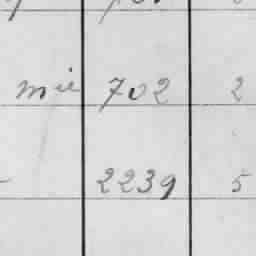 mie 702 2
2239 5